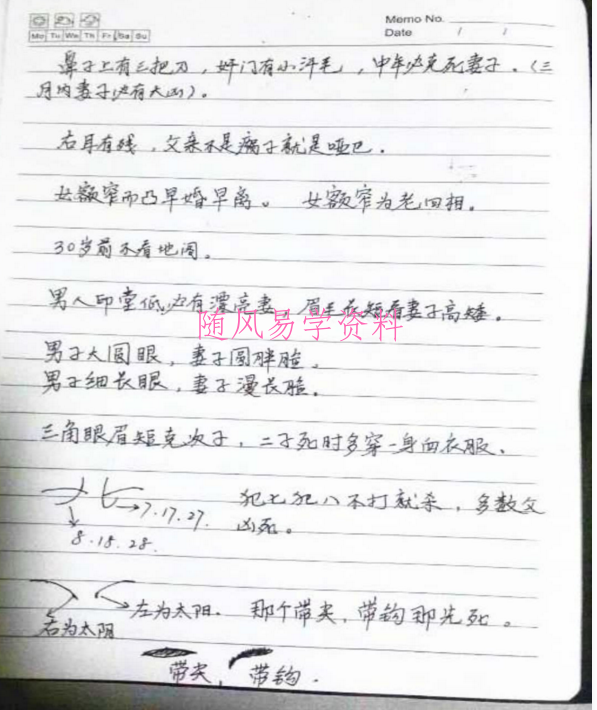 Memo No.
Mo Tu We Th Fr Sa Su
Date / /
鼻子上有三把刀，奸门有小汗毛，中年必克死妻子。（三
月内妻子必有大凶）。
右耳有残，父亲不是瘸子就是哑巴．
女额窄而凸早婚早离。 女额窄为老四相。
30岁前不看地阁。
男人印堂低必有漂亮妻 眉毛长短看妻子高矮．
随风易学资料
男子大圆眼，妻子圆胖脸．
男子细长眼，妻子漫长脸．
三角眼眉短克次子，二子死时多穿一身血衣服、
7.17.27. 犯七犯八不打就杀，多数父
8.18.28. 凶死。
左为太阳． 那个带尖，带钩那先死。
右为太阴
带尖， 带钩．